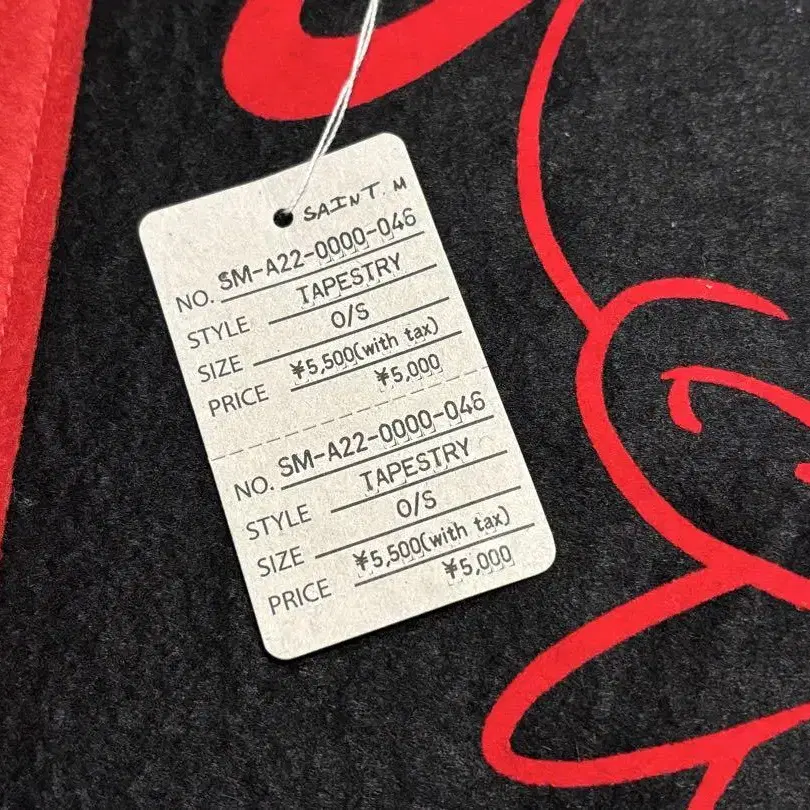 SAINT. M
NO. SM-A22-0000-046
STYLE TAPESTRY
SIZE O/S
PRICE ¥5,500(with tax)
¥5,000
NO. SM-A22-0000-046
STYLE TAPESTRY
SIZE O/S
PRICE ¥5,500(with tax)
¥5,000